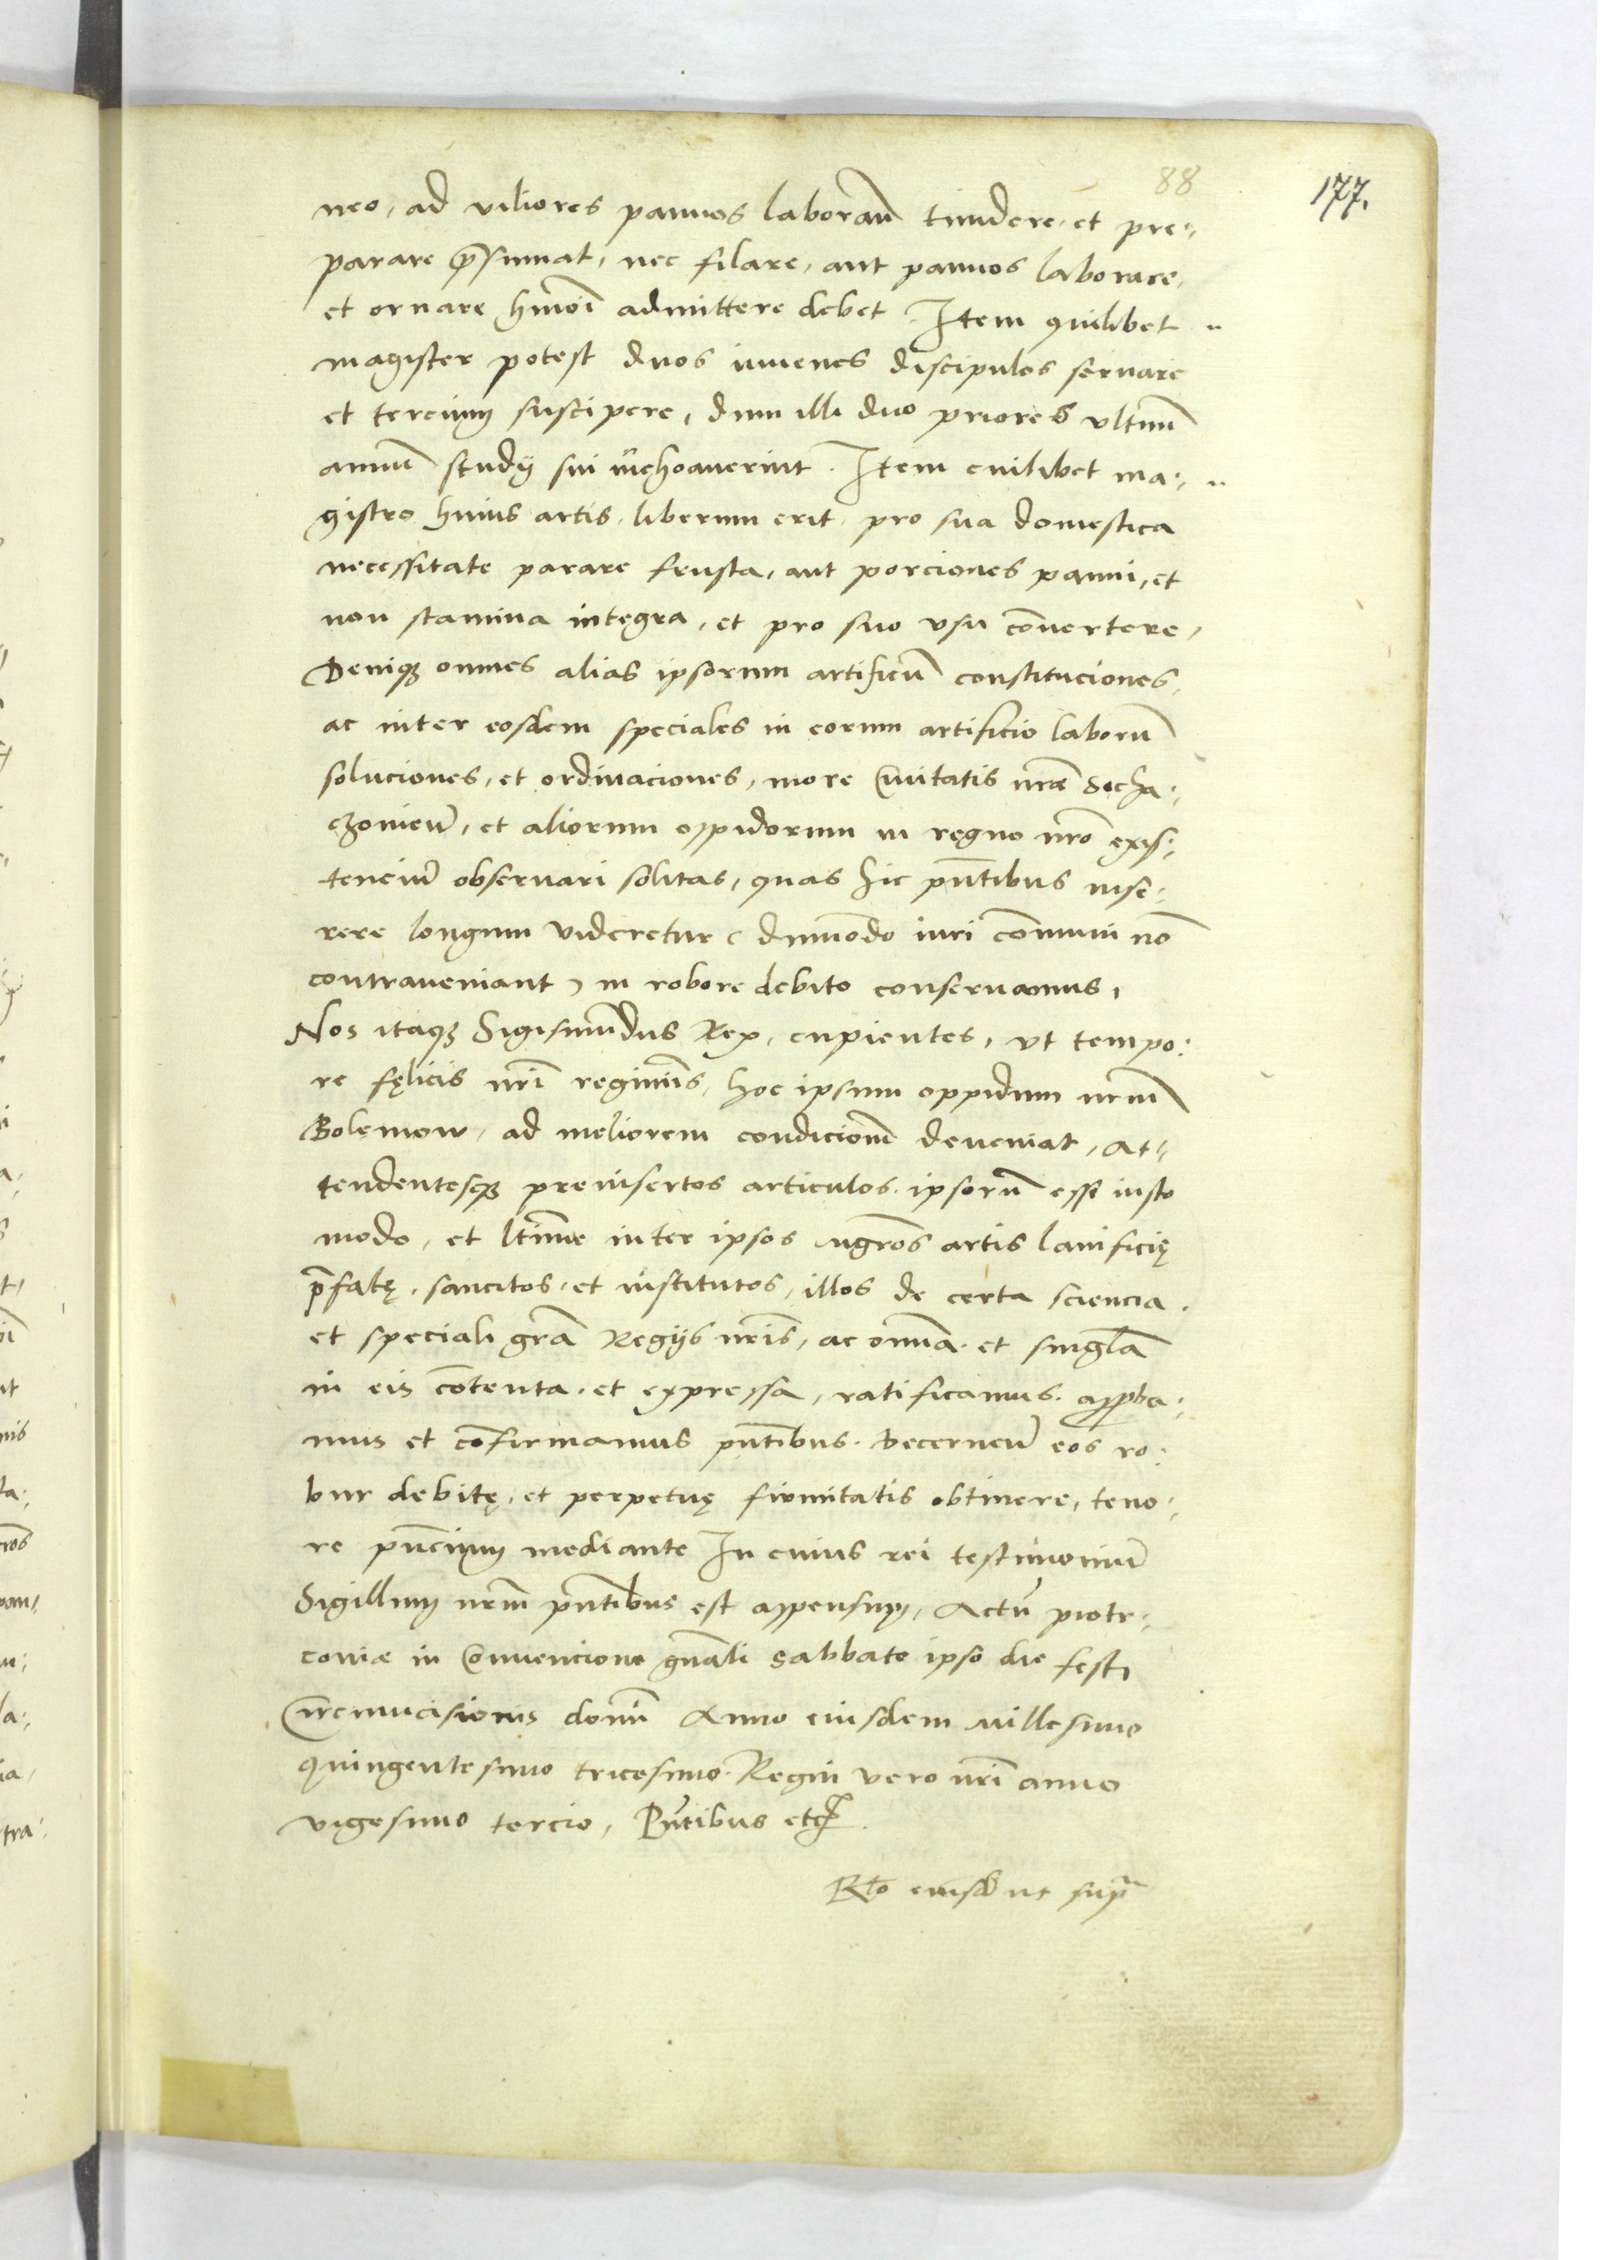 88
177.
neo, ad viliores pannos laborand̄ tundere et pre:
parare p̄sumat, nec filare, aut pannos laborare,
et ornare hmōi admittere debet. Item quilibet
magister potest duos iuvenes discipulos servare
et tercium suscipere, dum illi duo priores ultimū
annuū studij sui inchoaverint. Item cuilibet ma:
gistro huius artis, liberum erit, pro sua domestica
necessitate parare frusta, aut porciones panni, et
non stamina integra, et pro suo usu cōvertere,
Deniq3 omnes alias ipsorum artificū constituciones,
ac inter eosdem speciales in eorum artificio laborū
soluciones, et ordinaciones, more Civitatis nr̄ae Socha:
czovien̄, et aliorum oppidorum in regno nr̄o exis:
tenciū observari solitas, quas hic pn̄tibus inse:
rere longum videretur ( dūmodo iuri cōmuni nō
contraveniant ) in robore debito conservamus,
Nos itaq3 Sigismūdus Rex, cupientes, ut tempo:
re fęlicis nr̄i regiminis, hoc ipsum oppidum nr̄m
Bolemow, ad meliorem condicionē deveniat, At:
tendentesq3 preinsertos articulos ipsorū esse iusto
modo, et ltīme inter ipsos mgr̄os artis lanificię
p̄fatę, sancitos et institutos, illos de certa sciencia
et speciali gr̄a Regijs nr̄is, ac omīa et singl̄a
in eis cōtenta et expressa, ratificamus appba:
mus et cōfirmamus pn̄tibus. Decernen̄ eos ro:
bur debitę, et perpetuę firmitatis obtinere, teno:
re pn̄cium mediante In cuius rei testimoniū
Sigillum nr̄m pn̄tibus est appensum, Actū piotr:
coviæ in Convencione gn̄ali sabbato ipso die festi
Circumcisionis domī Anno eiusdem Millesimo
quingentesimo tricesimo Regni vero nr̄i anno
vigesimo tercio, Pn̄tibus etc.
Rt̄o eiusd ut supr̄a